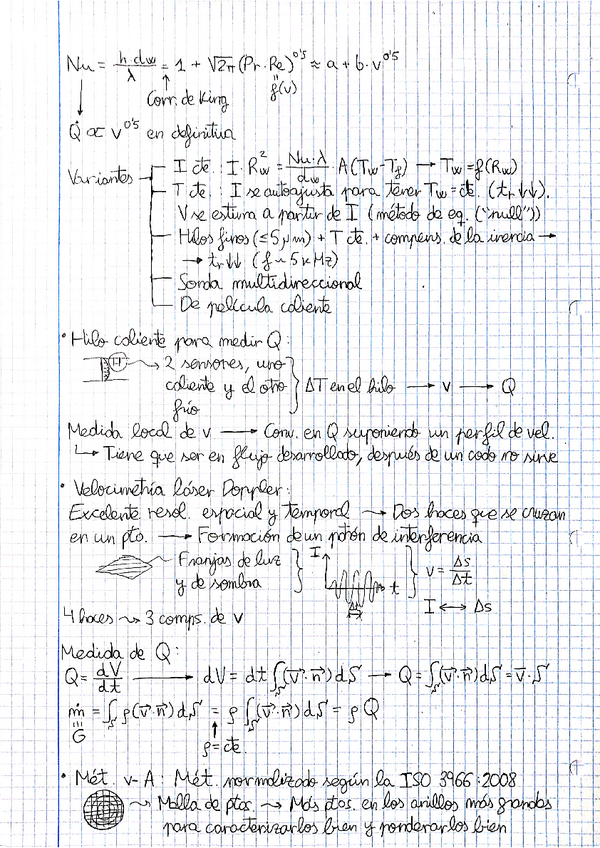 Nu = h·dw/λ = 1 + √2π (Pr·Re)^0'5 ≈ a + b·v^0'5
Corr. de King
f(v)
Q̇ ∝ v^0'5 en definitiva
Variantes
I cte. : I·Rw² = Nu·λ/dw · A(Tw-Tf) → Tw = f(Rw)
T cte. : I se autoajusta para tener Tw = cte. (tr ↓↓).
V se estima a partir de I (método de eq. ("null"))
Hilos finos (≤5 μm) + T cte. + compens. de la inercia →
→ tr ↓↓ (f ~ 5 kHz)
Sonda multidireccional
De película caliente
• Hilo caliente para medir Q:
2 sensores, uno
caliente y el otro
frío
ΔT en el hilo → v → Q
Medida local de v → Conv. en Q suponiendo un perfil de vel.
↳ Tiene que ser en flujo desarrollado, después de un codo no sirve
• Velocimetría láser Doppler:
Excelente resol. espacial y temporal → Dos haces que se cruzan
en un pto. → Formación de un patrón de interferencia
Franjas de luz
y de sombra
I
t
Δt
v = Δs/Δt
I ↔ Δs
4 haces ⇝ 3 comps. de v
Medida de Q:
Q = dV/dt → dV = dt ∫S (v⃗·n⃗) dS → Q = ∫S (v⃗·n⃗) dS = v̄·S
ṁ = ∫S ρ(v⃗·n⃗) dS = ρ ∫S (v⃗·n⃗) dS = ρ Q
G
ρ = cte.
• Mét. v-A : Mét. normalizado según la ISO 3966:2008
⇝ Malla de ptos. → Más ptos. en los anillos más grandes
para caracterizarlos bien y ponderarlos bien